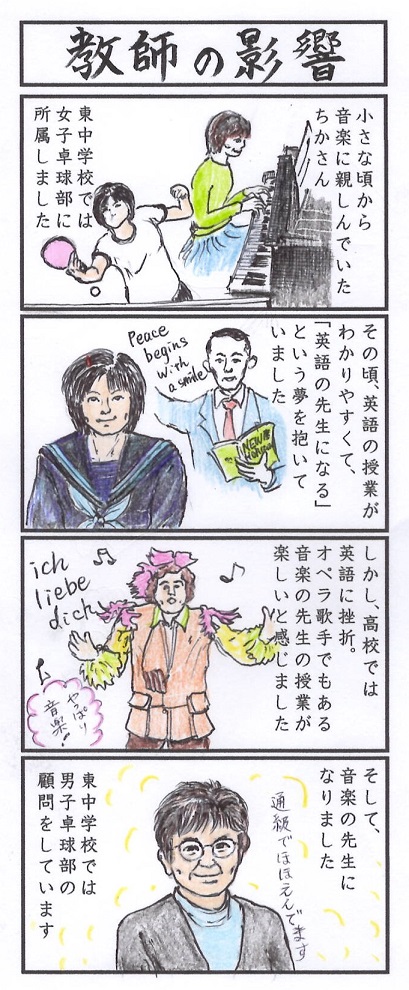 教師の影響
小さな頃から
音楽に親しんでいた
ちかさん
東中学校では
女子卓球部に
所属しました
その頃、英語の授業が
わかりやすくて、
「英語の先生になる」
という夢を抱いて
いました
Peace
begins
with
a smile
NEW
しかし、高校では
英語に挫折。
オペラ歌手でもある
音楽の先生の授業が
楽しいと感じました
ich
liebe
dich
やっぱり
音楽!
そして、
音楽の先生に
なりました
通級でほほえんでます
東中学校では
男子卓球部の
顧問をしています